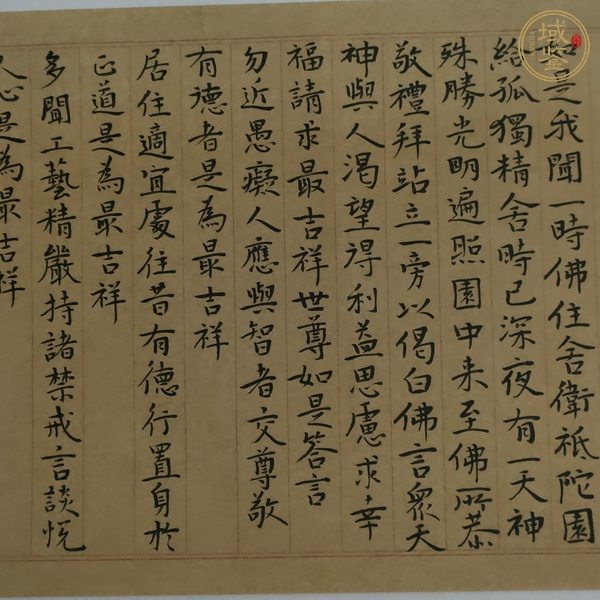 如是我聞一時佛住舍衛祇陀園
給孤獨精舍時已深夜有一天神
殊勝光明遍照園中来至佛所恭
敬禮拜站立一旁以偈白佛言眾天
神與人渴望得利益思慮求幸
福請求最吉祥世尊如是答言
勿近愚癡人應與智者交尊敬
有德者是為最吉祥
居住適宜處往昔有德行置身於
正道是為最吉祥
多聞工藝精嚴持諸禁戒言談悅
人心是為最吉祥
域鉴